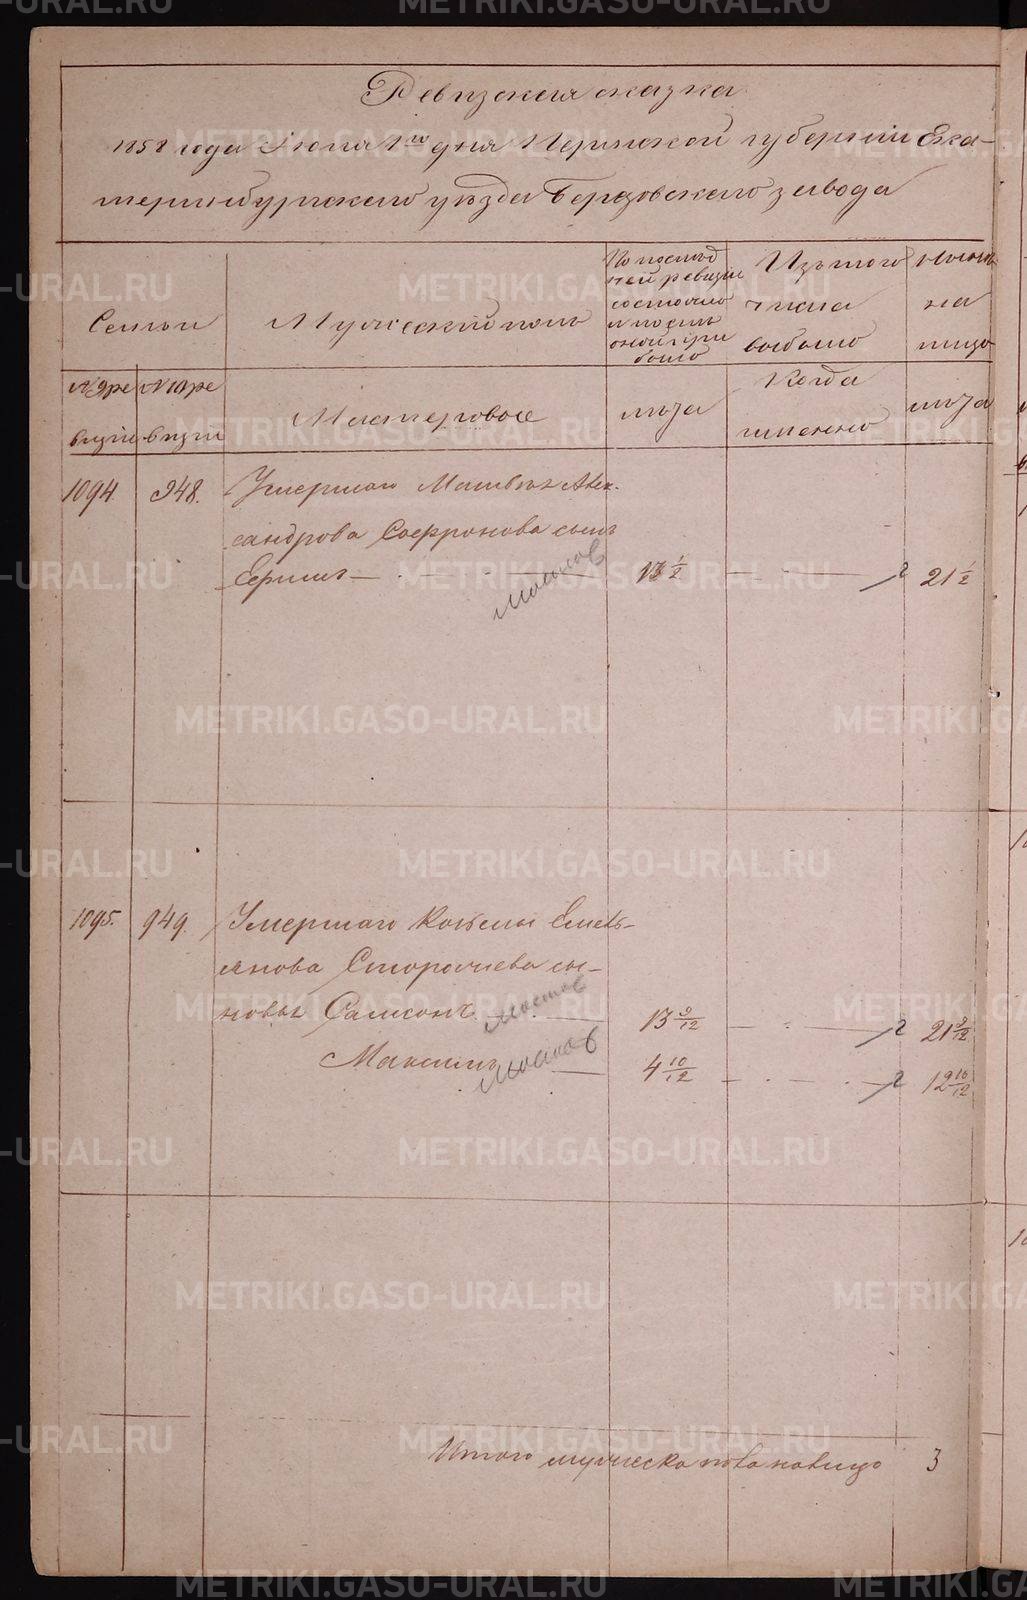 Ревизская сказка
1858 года Июня 1го дня Пермской губернии Ека-
теринбургского уѣзда Березовского завода
Семьи
Мужеский полъ
По послѣд
ней ревизiи
состояло
и послѣ
оной при
было
Изъ того
числа
выбыло
Нынѣ
на
лицо
№ 9 ре
визiи
№ 10 ре
визiи
Мастеровые
лѣта
Когда
именно
лѣта
1094.
948.
Умершаго Матвѣя Алек-
сандрова Сафронова сынъ
Ермилъ
13 1/2
21 1/2
1095.
949.
Умершаго Козьмы Емель-
янова Сторожева сы-
новья Самсонъ
13 9/12
21 9/12
Максимъ
4 10/12
12 10/12
Итого мужеска пола налицо 3
METRIKI.GASO-URAL.RU